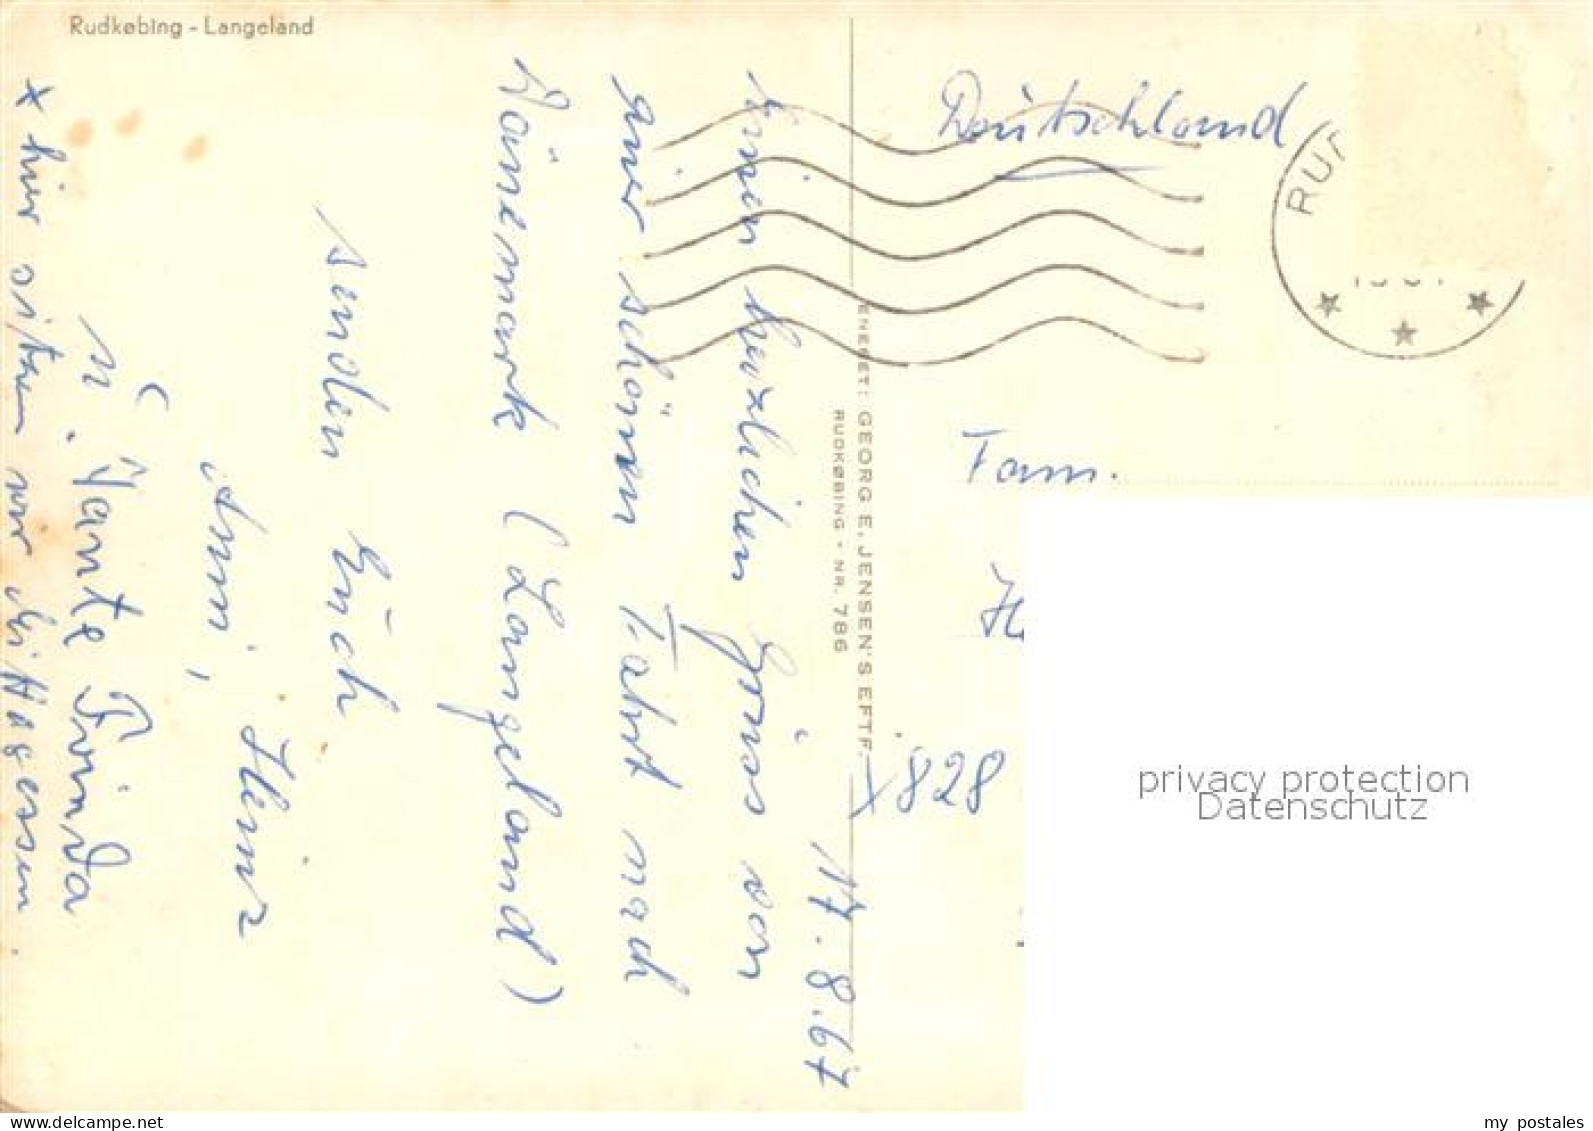 Rudkøbing - Langeland
17.8.67
Einen herzlichen Gruss von
einer schönen Fahrt nach
Dänemark (Langeland)
senden Euch
Anni, Heinz
u. Tante Frieda
x hier sitzen wir b. Mittagessen.
ENERET: GEORG E. JENSEN'S EFTF.
RUDKØBING - NR. 786
Deutschland
RU
Fam.
H
X828
privacy protection
Datenschutz
delcampe.net
my postales